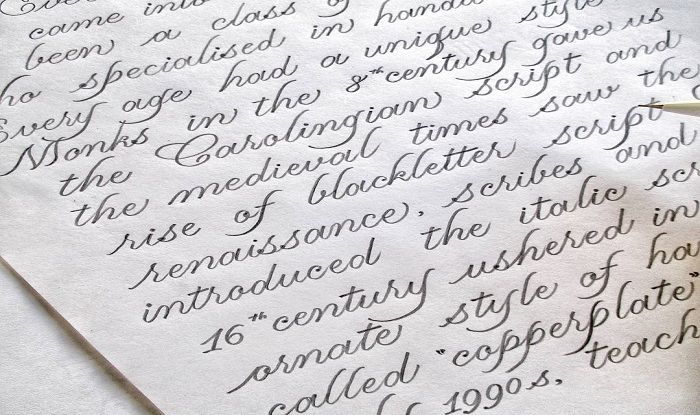 came into
been a class of
who specialised in hand
Every age had a unique style
Monks in the 8th century gave us
the Carolingian script and
the medieval times saw the
rise of blackletter script
renaissance, scribes and
introduced the italic scr
16th century ushered in
ornate style of ha
called "copperplate"
1990s, teach